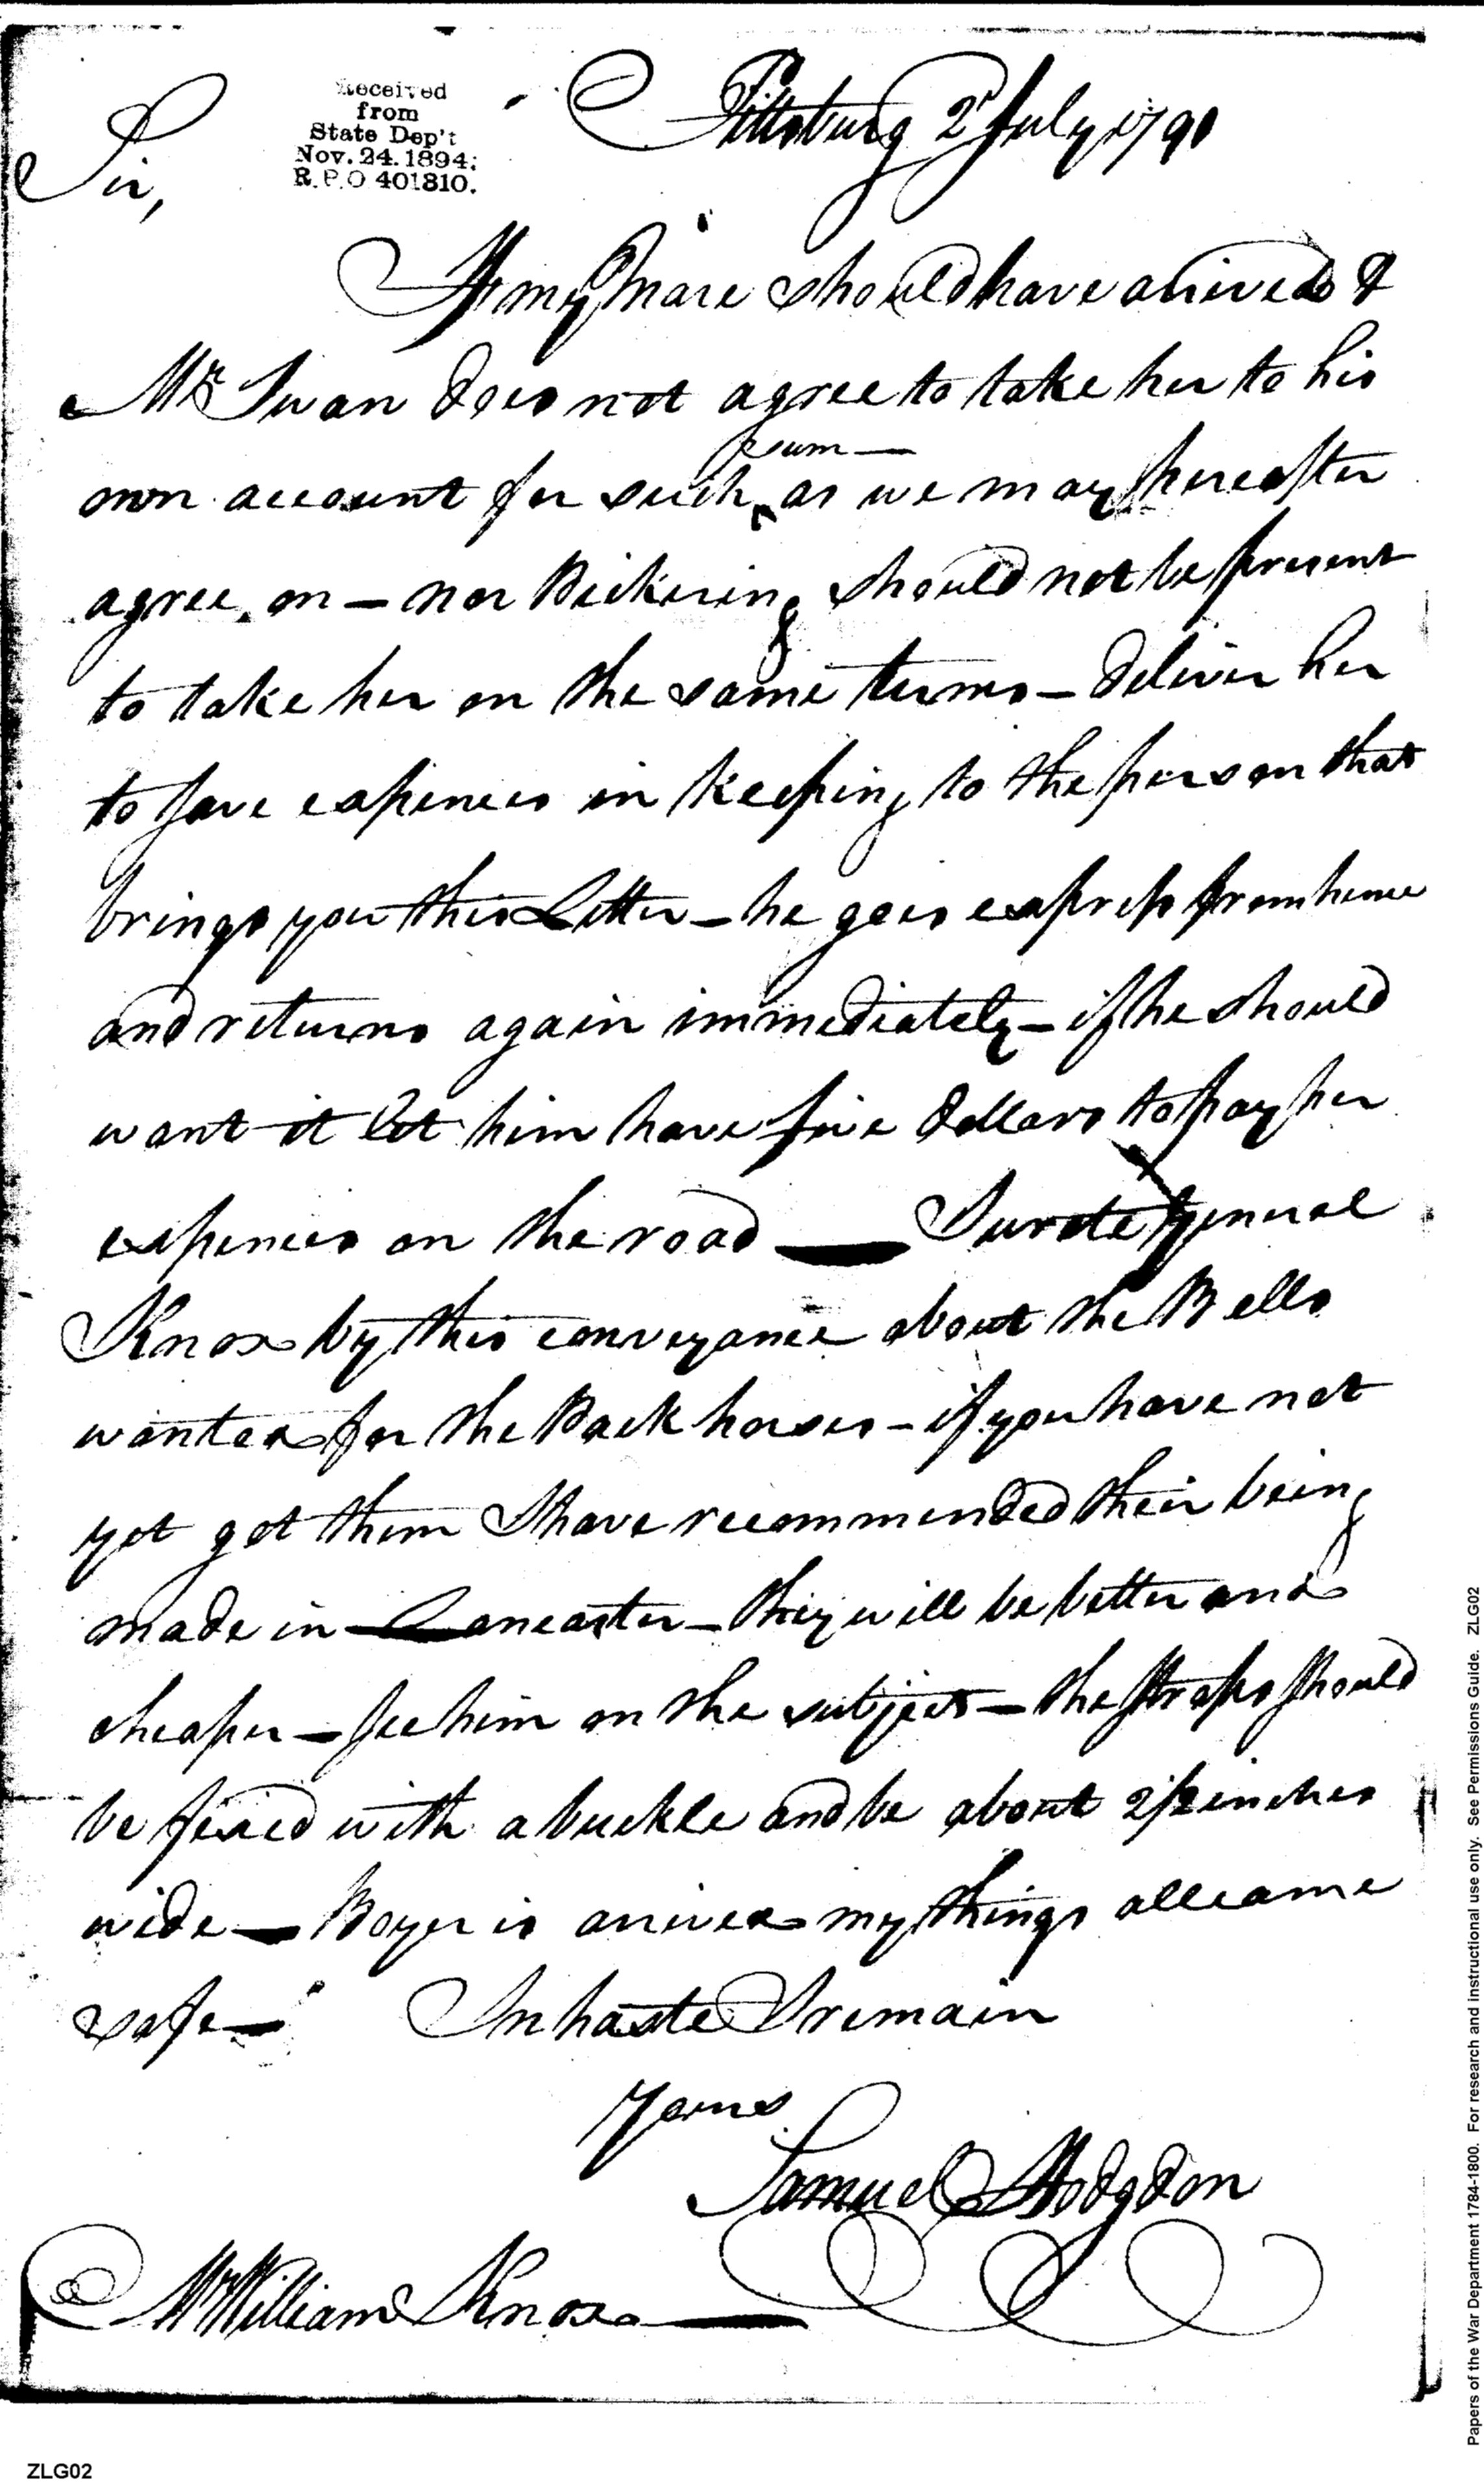 Received
from
State Dep't
Nov. 24. 1894;
R.P.O 401810.
Pittsburg 2d July 1791
Sir,
If my Mare should have arrived &
Mr Swan does not agree to take her to his
own account for such ^ sum — as we may hereafter
agree on — nor Bickering should not be present
to take her on the same terms — deliver her
to save expences in keeping to the person that
brings you this Letter — he goes express from hence
and returns again immediately — if he should
want it let him have five dollars to pay her
expences on the road — I wrote General
Knox by this conveyance about the Bells
wanted for the Pack horses — if you have not
yet got them I have recommended their being
made in Lancaster — they will be better and
cheaper — see him on the subject — the straps should
be fixed with a buckle and be about 2 1/2 inches
wide — Boyer is arrived my things all came
safe — In haste I remain
Yours
Samuel Hodgdon
Mr William Knox
Papers of the War Department 1784-1800. For research and instructional use only. See Permissions Guide. ZLG02
ZLG02